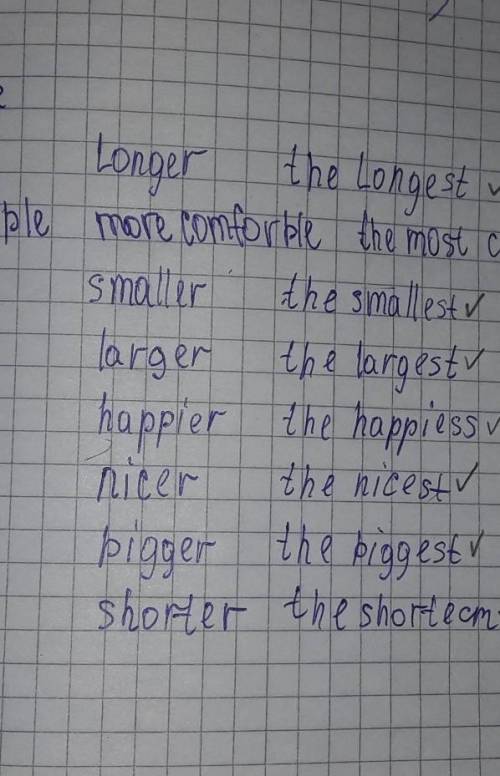 Longer the Longest ✓
ple more comforble the most c
smaller the smallest ✓
larger the largest ✓
happier the happiess ✓
nicer the nicest ✓
bigger the biggest ✓
shorter the shortecm